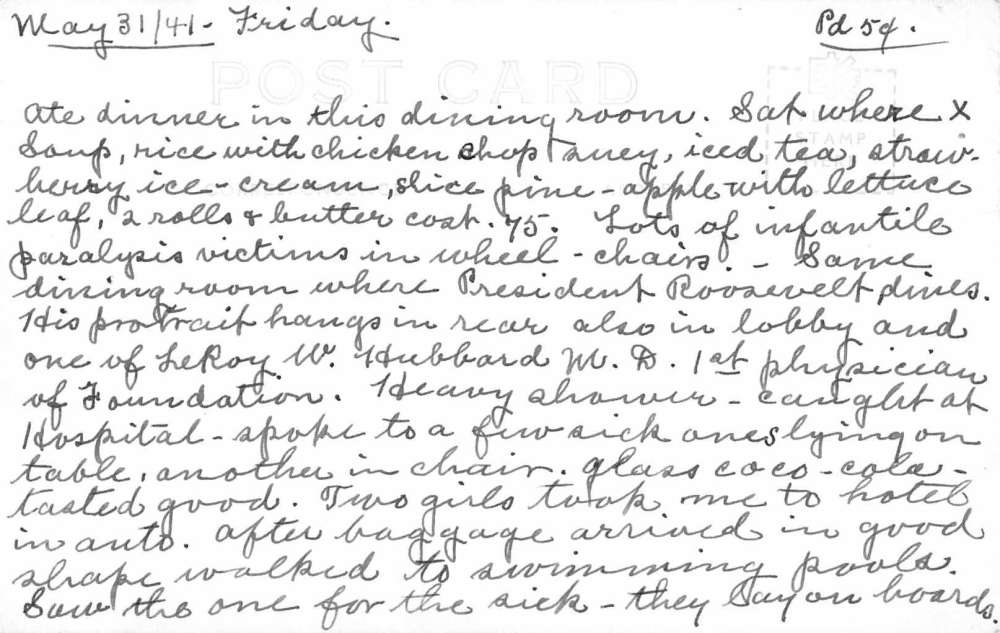 May 31/41 - Friday. Pd 5¢.
POST CARD
STAMP
Ate dinner in this dining room. Sat where x
Soup, rice with chicken chop suey, iced tea, straw-
berry ice-cream, slice pine-apple with lettuce
leaf, 2 rolls & butter cost .75. Lots of infantile
paralysis victims in wheel-chairs. - Same
dining room where President Roosevelt dines.
His protrait hangs in rear also in lobby and
one of LeRoy W. Hubbard M.D. 1st physician
of Foundation. Heavy shower - caught at
Hospital - spoke to a few sick ones lying on
table, another in chair. Glass coco-cola -
tasted good. Two girls took me to hotel
in auto. After baggage arrived in good
shape walked to swimming pools.
Saw the one for the sick - they lay on boards.